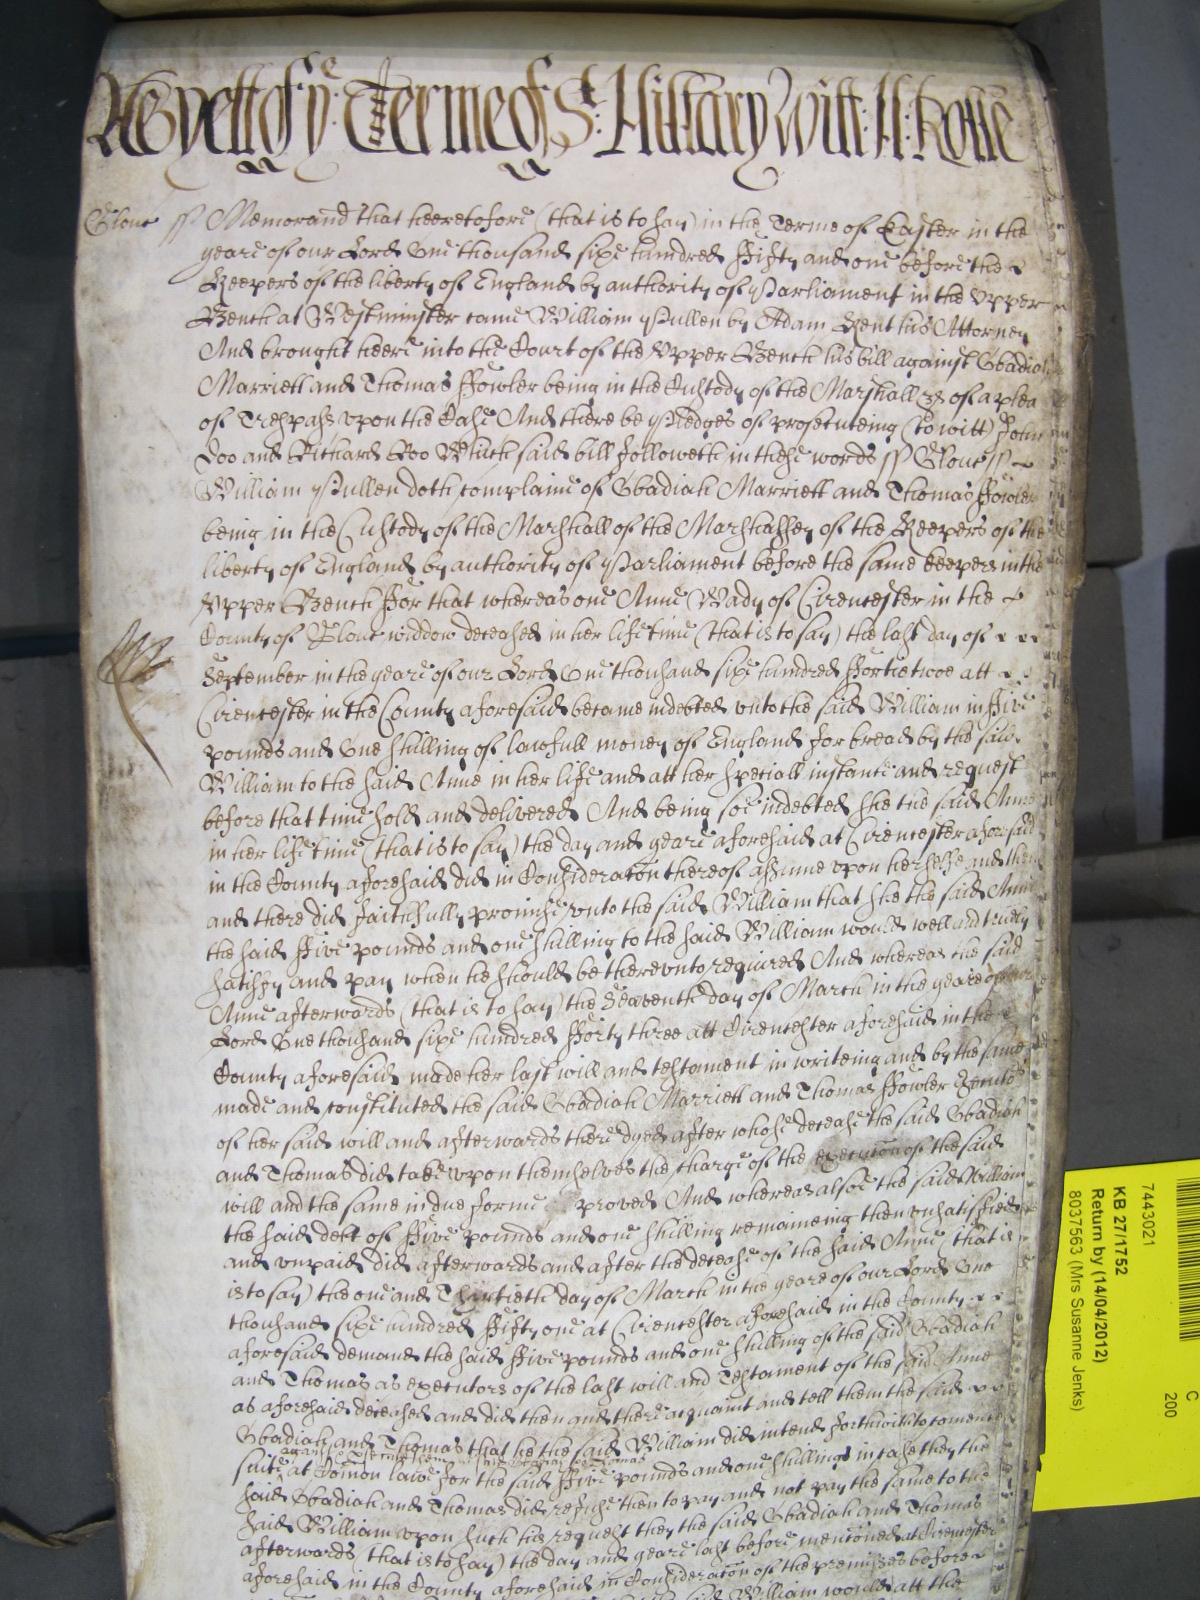 As yett of ye Terme of St: Hillary Witt: H: Rolle
Glouc ss Memorand that heeretofore (that is to say) in the Terme of Easter in the
yeare of our Lord One thousand sixe hundred Fifty and one before the
Keepers of the liberty of England by authority of Parliament in the Upper
Bench at Westminster came William Pullen by Adam Kent his Attorney
And brought heere into the Court of the Upper Bench his bill against Obadiah
Marriett and Thomas Fowler being in the Custody of the Marshall &c of a plea
of Trespass upon the Case And there be Pledges of prosecuteing (to witt) John
Doo and Richard Roo Which said bill followeth in these words ss Glouc ss
William Pullen doth complaine of Obadiah Marriett and Thomas Fowler
being in the Custody of the Marshall of the Marshalsey of the Keepers of the
liberty of England by authority of Parliament before the same keepers in the
Upper Bench For that whereas one Anne Wady of Cirencester in the
County of Glouc widdow deceased in her life time (that is to say) the last day of
September in the yeare of our Lord One thousand sixe hundred Fortie twoe att
Cirencester in the County aforesaid became indebted unto the said William in Five
pounds and One shilling of lawfull money of England for bread by the said
William to the said Anne in her life and att her speciall instance and request
before that time sold and delivered And being soe indebted shee the said Anne
in her life time (that is to say) the day and yeare aforesaid at Cirencester aforesaid
in the County aforesaid did in Consideraton thereof assume upon her selfe and then
and there did faithfully promise unto the said William that shee the said Anne
the said Five pounds and one shilling to the said William would well and truely
satisfy and pay when she should be thereunto required And whereas the said
Anne afterwards (that is to say) the Seaventh day of March in the yeare of our
Lord One thousand sixe hundred Forty three att Cirencester aforesaid in the
County aforesaid made her last will and testament in writeing and by the same
made and constituted the said Obadiah Marriett and Thomas Fowler Executors
of her said will and afterwards there dyed after whose decease the said Obadiah
and Thomas did take upon themselves the charge of the execution of the said
will and the same in due forme proved And whereas alsoe the said William
the said debt of Five pounds and one shilling remaineing then unsatisfied
and unpaid did afterwards and after the decease of the said Anne (that is
is to say) the one and Thirtieth day of March in the yeare of our Lord One
thousand sixe hundred Fifty one at Cirencester aforesaid in the County
aforesaid demand the said Five pounds and one shilling of the said Obadiah
and Thomas as executors of the last will and Testament of the said Anne
as aforesaid deceased and did then and there acquaint and tell them the said
Obadiah and Thomas that hee the said William did intend forthwith to comence
against
suite at Comon lawe for the said Five pounds and one shillings in case they the
said Obadiah and Thomas did refuse then to pay and not pay the same to the
said William upon such his request they the said Obadiah and Thomas
afterwards (that is to say) the day and yeare last before mentioned at Cirencester
aforesaid in the County aforesaid in Consideraton of the premisses before
said William would att the
7443021
KB 27/1752
Return by (14/04/2012)
8037563 (Mrs Susanne Jenks)
C
200